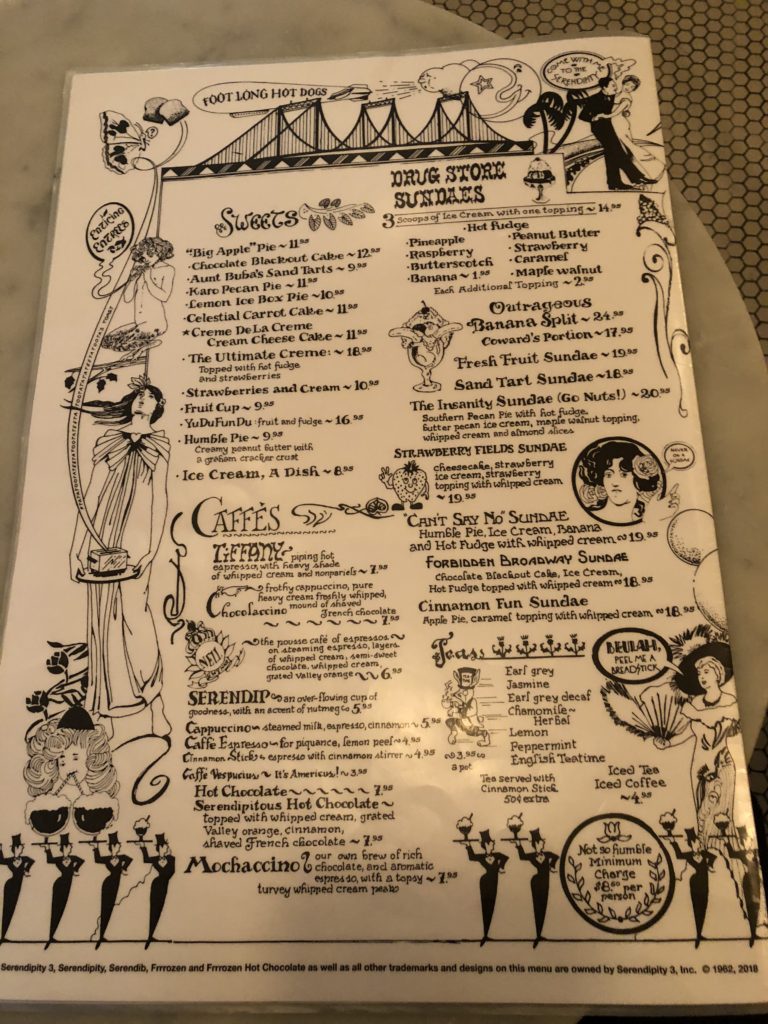 FOOT LONG HOT DOGS
COME WITH ME
TO THE
SERENDIPITY
ENTICING
ENTREES
SWEETS
"Big Apple" Pie ~ 11.95
• Chocolate Blackout Cake ~ 12.95
• Aunt Buba's Sand Tarts ~ 9.95
• Karo Pecan Pie ~ 11.95
• Lemon Ice Box Pie ~ 10.95
• Celestial Carrot Cake ~ 11.95
★ Creme De La Creme
Cream Cheese Cake ~ 11.95
• The Ultimate Creme: ~ 18.95
Topped with hot fudge
and strawberries
• Strawberries and Cream ~ 10.95
• Fruit Cup ~ 9.95
• YuDuFunDu: fruit and fudge ~ 16.95
• Humble Pie ~ 9.95
Creamy peanut butter with
a graham cracker crust
• Ice Cream, A Dish ~ 8.95
DRUG STORE
SUNDAES
3 Scoops of Ice Cream with one topping ~ 14.95
• Hot Fudge
• Pineapple
• Peanut Butter
• Raspberry
• Strawberry
• Butterscotch
• Caramel
• Banana ~ 1.95
• Maple Walnut
Each Additional Topping ~ 2.95
Outrageous
Banana Split ~ 24.95
Coward's Portion ~ 17.95
Fresh Fruit Sundae ~ 19.95
Sand Tart Sundae ~ 18.95
The Insanity Sundae (Go Nuts!) ~ 20.95
Southern Pecan Pie with hot fudge,
butter pecan ice cream, maple walnut topping,
whipped cream and almond slices
STRAWBERRY FIELDS SUNDAE
cheesecake, strawberry
ice cream, strawberry
topping with whipped cream
~ 19.95
NEVER
ON A
SUNDAE
"CAN'T SAY NO" SUNDAE
Humble Pie, Ice Cream, Banana
and Hot Fudge with whipped cream ~ 19.95
FORBIDDEN BROADWAY SUNDAE
Chocolate Blackout Cake, Ice Cream,
Hot Fudge topped with whipped cream ~ 18.95
Cinnamon Fun Sundae
Apple Pie, caramel topping with whipped cream ~ 18.95
CAFFÈS
TIFFANY piping hot
espresso, with heavy shade
of whipped cream and nonpariels ~ 7.95
Chocolaccino frothy cappuccino, pure
heavy cream freshly whipped,
mound of shaved
French chocolate
~ 7.95
NEIL
the pousse café of espressos ~
on steaming espresso, layers
of whipped cream, semi-sweet
chocolate, whipped cream,
grated Valley orange ~ 6.95
SERENDIP ~ an over-flowing cup of
goodness, with an accent of nutmeg ~ 5.95
Cappuccino ~ steamed milk, espresso, cinnamon ~ 5.95
Caffe Espresso ~ for piquance, lemon peel ~ 4.95
Cinnamon Stick ~ espresso with cinnamon stirrer ~ 4.95
Caffe Vespucius ~ It's Americus! ~ 3.95
Hot Chocolate ~ 7.95
Serendipitous Hot Chocolate ~
topped with whipped cream, grated
Valley orange, cinnamon,
shaved French chocolate ~ 7.95
Mochaccino our own brew of rich
chocolate, and aromatic
espresso, with a topsy ~ 7.95
turvey whipped cream peak
Teas
Earl grey
Jasmine
Earl grey decaf
Chamomile ~
Herbal
Lemon
Peppermint
English Teatime
~ 3.95
a pot
Tea served with
Cinnamon Stick
50¢ extra
Iced Tea
Iced Coffee
~ 4.95
BEULAH,
PEEL ME A
BREADSTICK
Not so humble
Minimum
Charge
$8.50 per
person
Serendipity 3, Serendipity, Serendib, Frrrozen and Frrrozen Hot Chocolate as well as all other trademarks and designs on this menu are owned by Serendipity 3, Inc. © 1962, 2018